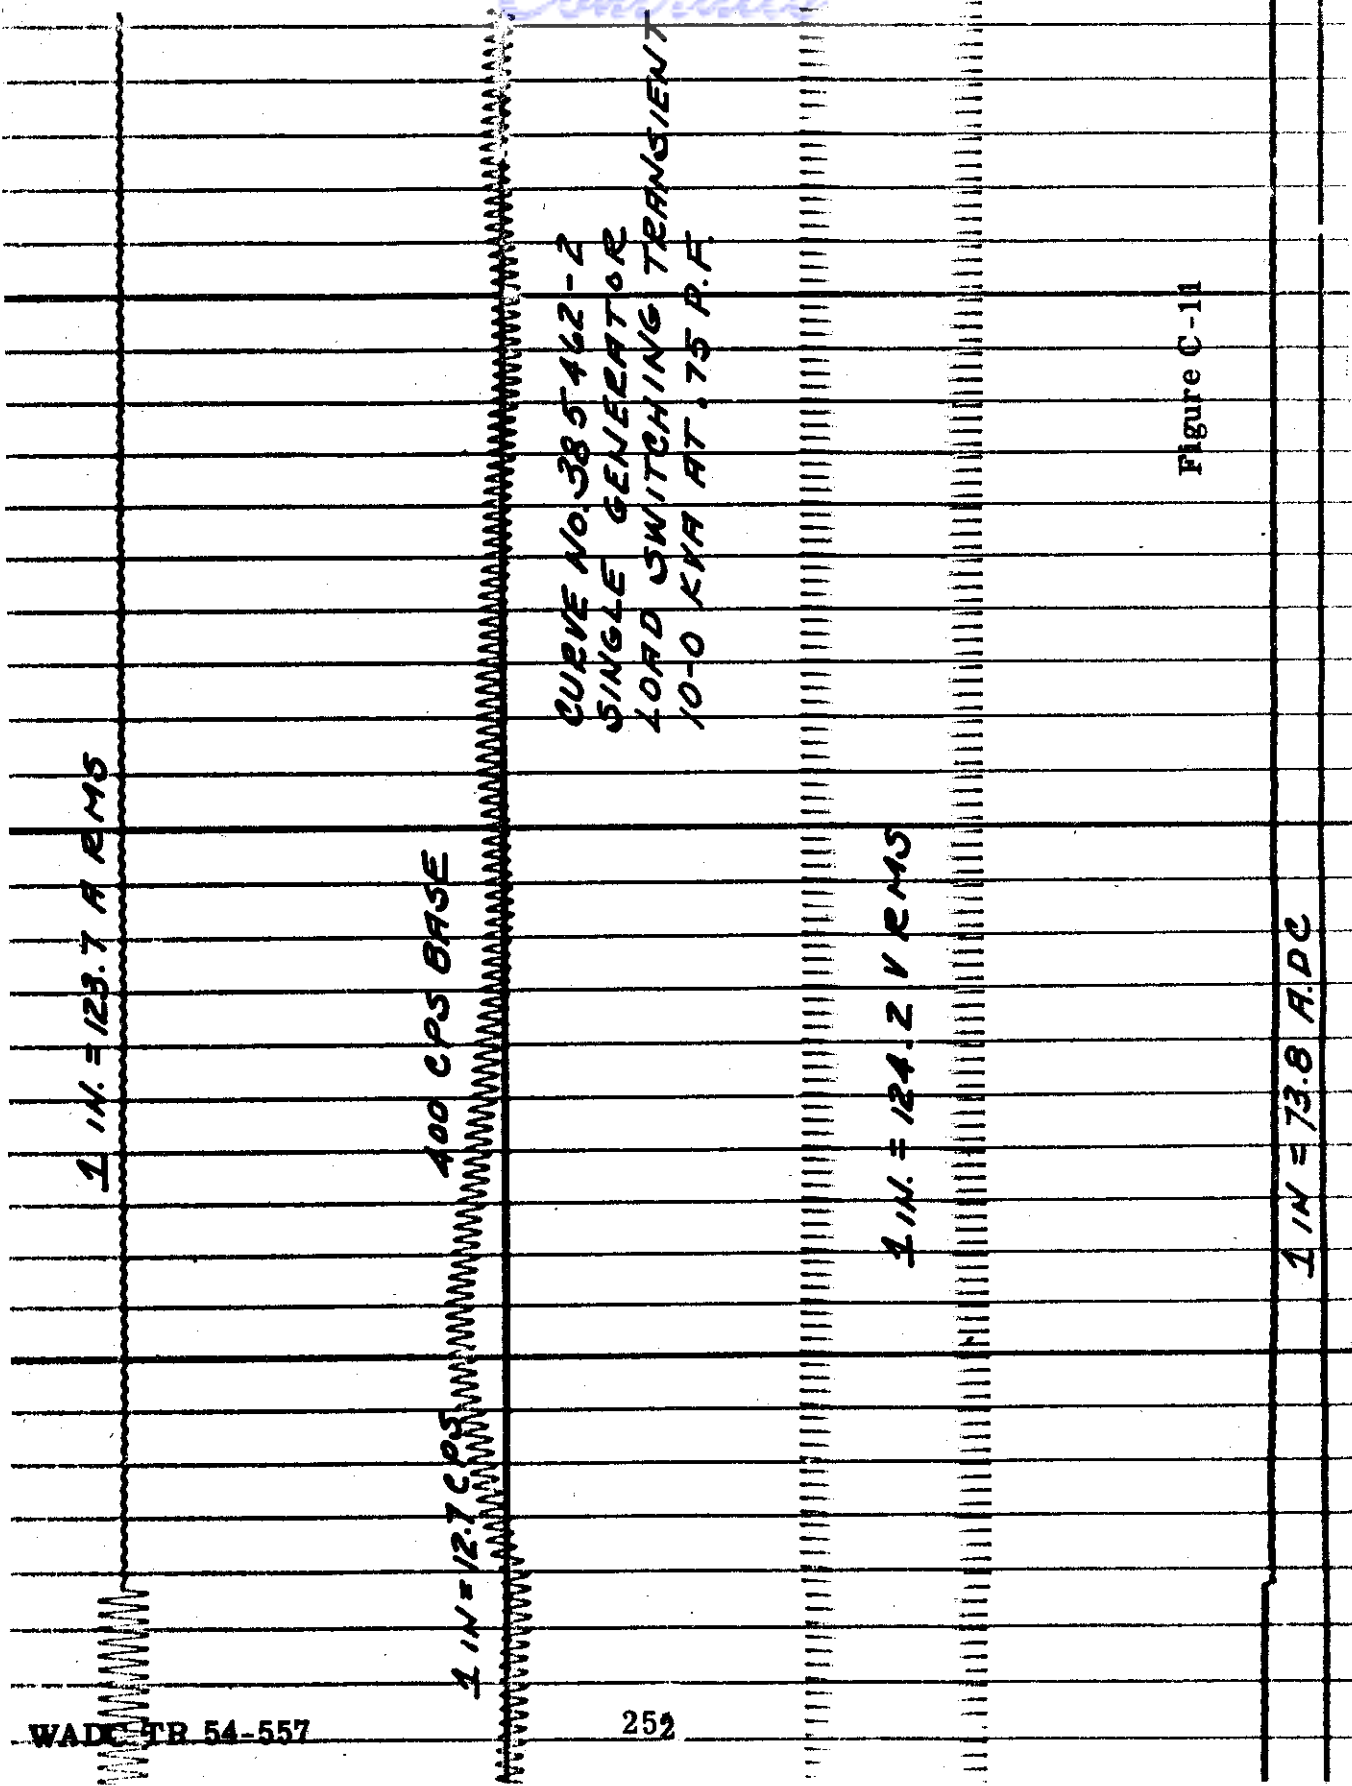 1 IN. = 123.7 A RMS
400 CPS BASE
1 IN = 12.7 CPS
CURVE NO. 385462-2
SINGLE GENERATOR
LOAD SWITCHING TRANSIENT
10-0 KVA AT .75 P.F.
1 IN. = 124.2 V RMS
Figure C-11
1 IN = 73.8 A.DC
WADC TR 54-557
252